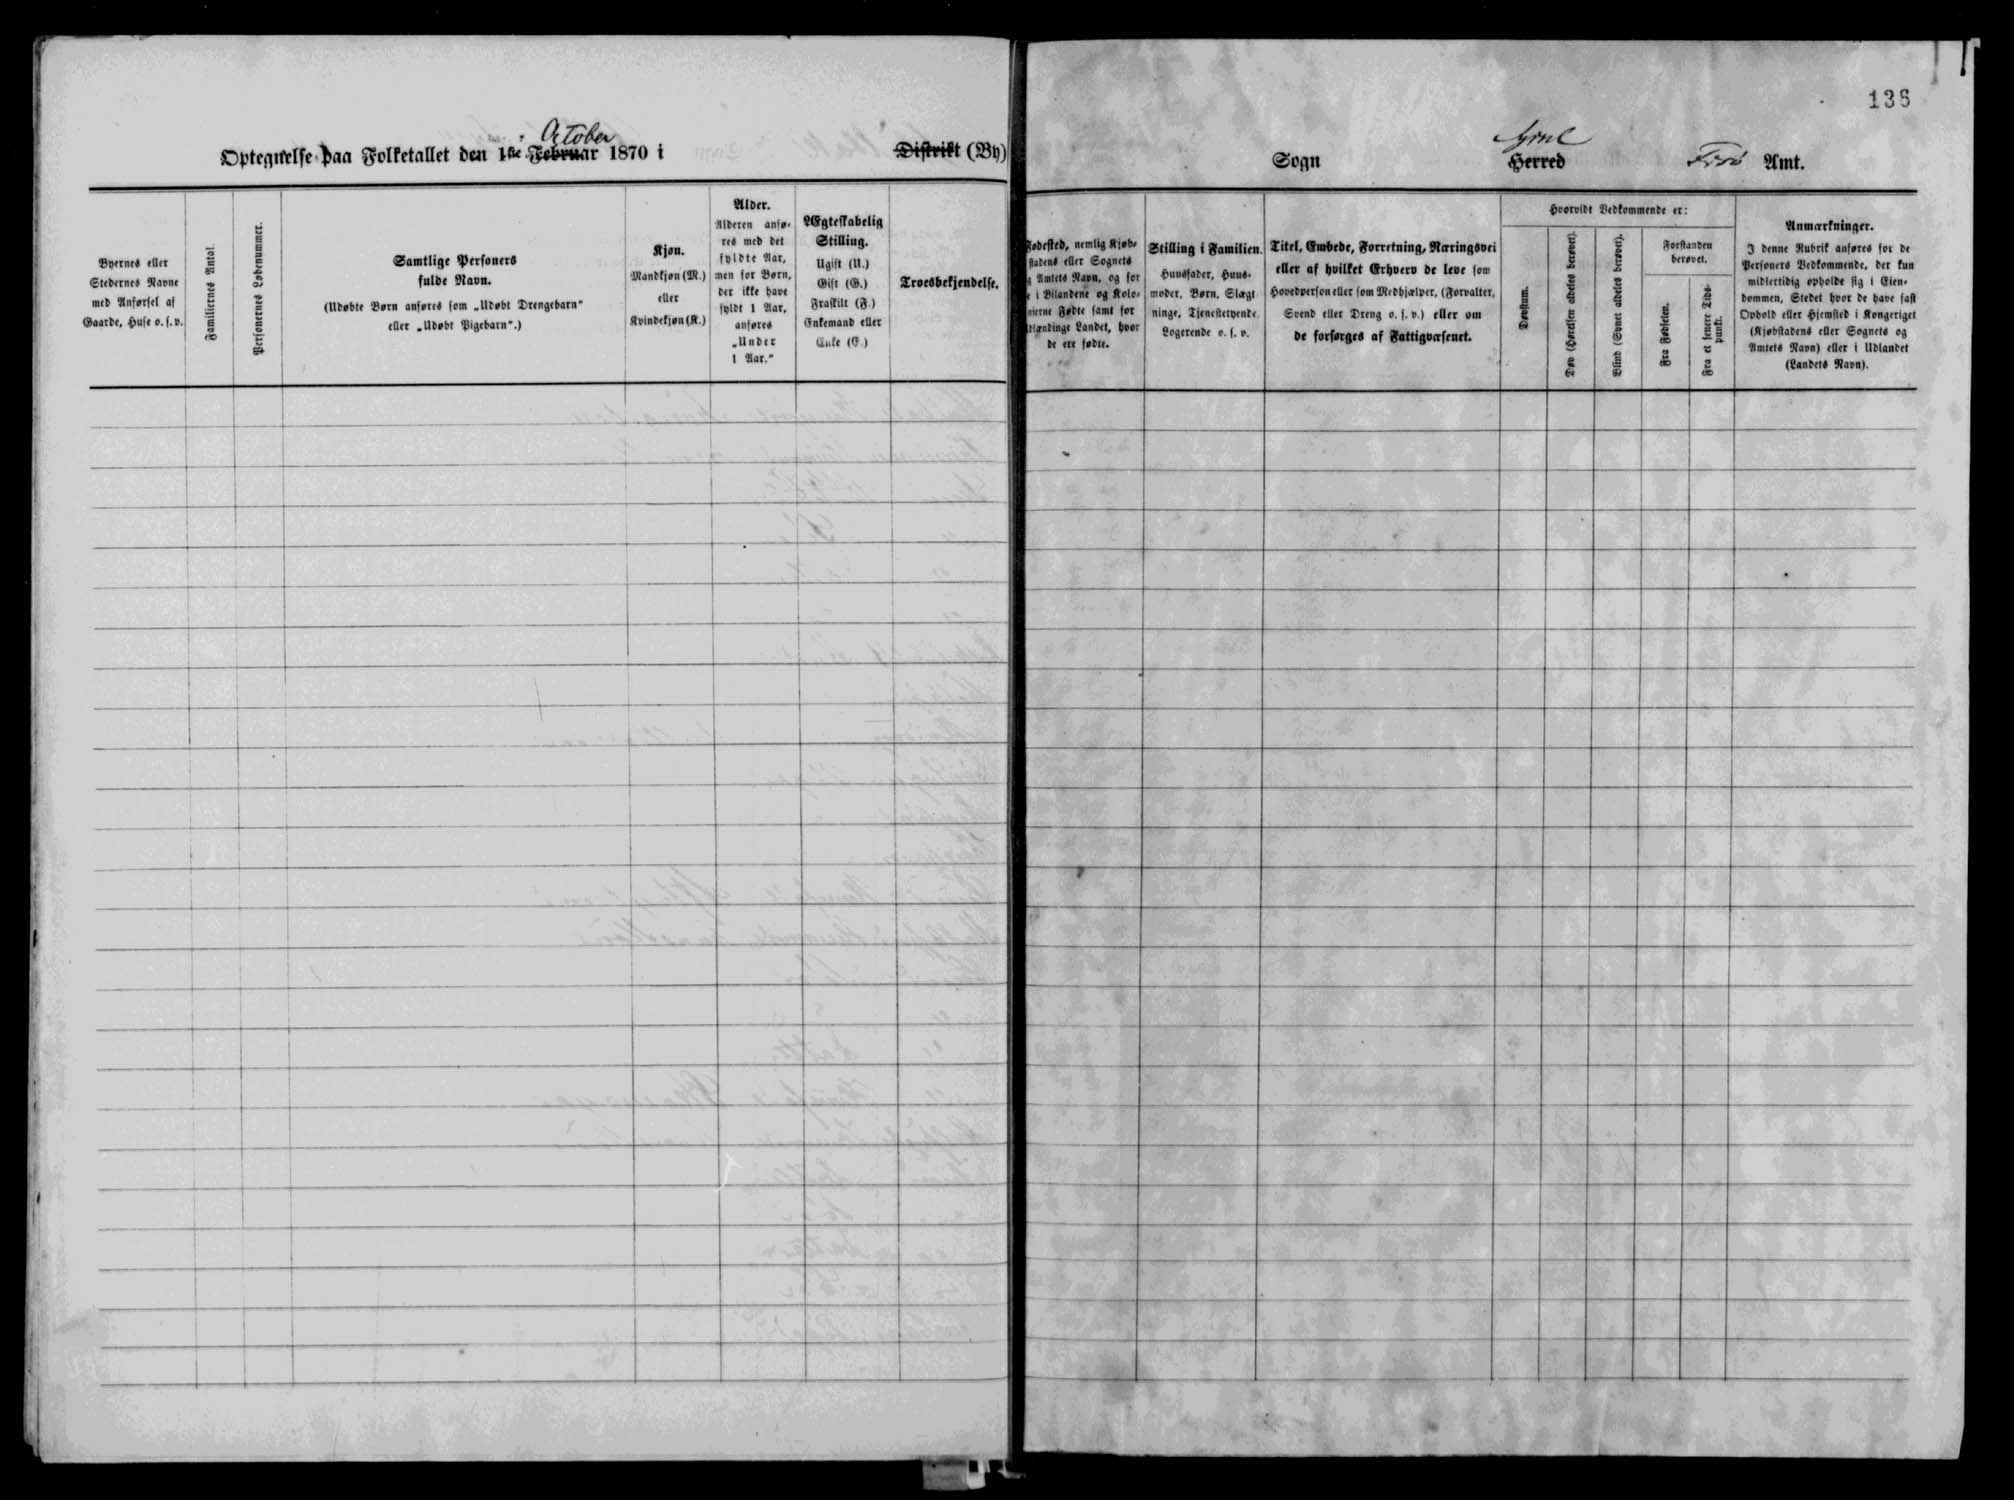 136
October
Optegnelse paa Folketallet den 1ste Februar 1870 i Distrikt (By)
Sogn Syssel Herred Færø Amt.
Byernes eller
Stedernes Navne
med Anførsel af
Gaarde, Huse o. s. v.
Familiernes Antal.
Personernes Løbenummer.
Samtlige Personers
fulde Navn.
(Udøbte Børn anføres som „Udøbt Drengebarn"
eller „Udøbt Pigebarn".)
Kjøn.
Mandkjøn (M.)
eller
Kvindekjøn (K.)
Alder.
Alderen anfø-
res med det
fyldte Aar,
men for Børn,
der ikke have
fyldt 1 Aar,
anføres
„Under
1 Aar."
Ægteskabelig
Stilling.
Ugift (U.)
Gift (G.)
Fraskilt (F.)
Enkemand eller
Enke (E.)
Troesbekjendelse.
Fødested, nemlig Kjøb-
stadens eller Sognets
g Amtets Navn, og for
e i Bilandene og Kolo-
nierne Fødte samt for
dlændinge Landet, hvor
de ere fødte.
Stilling i Familien.
Huusfader, Huus-
moder, Børn, Slægt
ninge, Tjenestetyende
Logerende o. s. v.
Titel, Embede, Forretning, Næringsvei
eller af hvilket Erhverv de leve som
Hovedperson eller som Medhjælper, (Forvalter,
Svend eller Dreng o. s. v.) eller om
de forsørges af Fattigvæsenet.
Hvorvidt Vedkommende er:
Døvstum.
Døv (Hørelsen aldeles berøvet).
Blind (Synet aldeles berøvet).
Forstanden
berøvet.
Fra Fødselen.
Fra et senere Tids-
punkt.
Anmærkninger.
I denne Rubrik anføres for de
Personers Vedkommende, der kun
midlertidig opholde sig i Eien-
dommen, Stedet hvor de have fast
Ophold eller Hjemsted i Kongeriget
(Kjøbstadens eller Sognets og
Amtets Navn) eller i Udlandet
(Landets Navn).